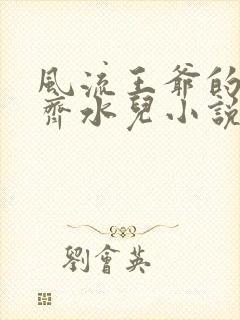 風流王爺的
齊冰兒小說
劉會英